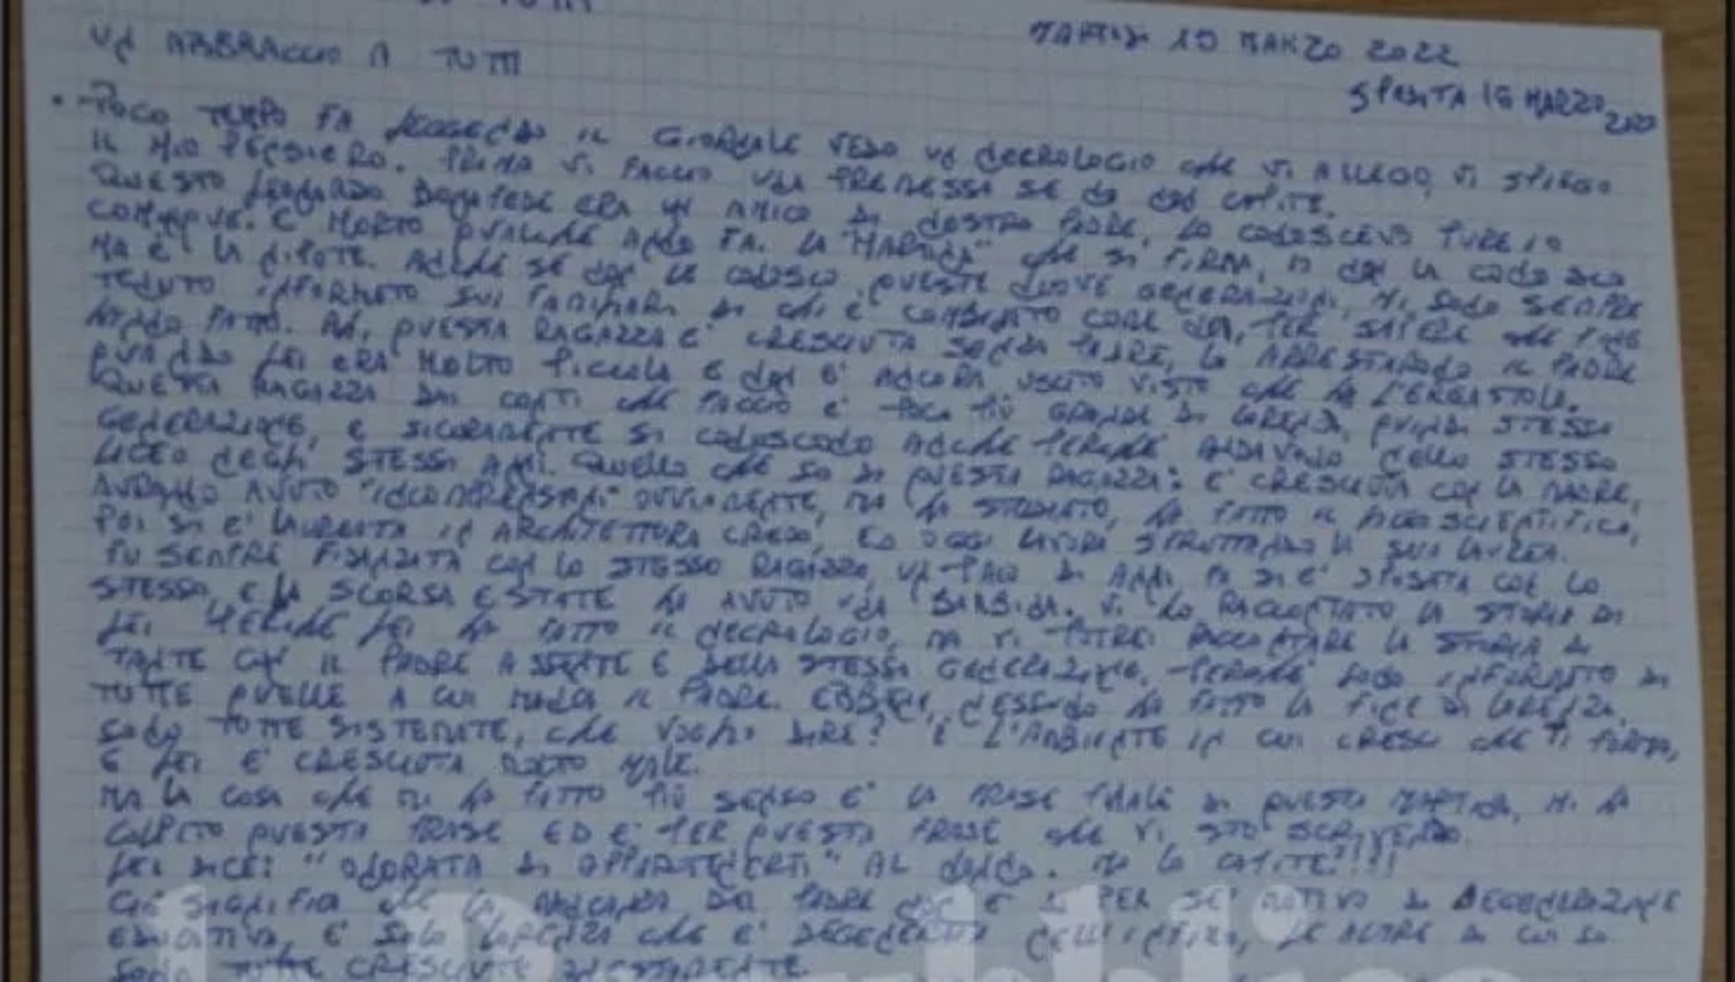 UN ABBRACCIO A TUTTI
MARTEDI 15 MARZO 2022
SPEDITA 16 MARZO 2022
POCO TEMPO FA LEGGENDO IL GIORNALE VEDO UN NECROLOGIO CHE VI ALLEGO, VI SPIEGO
IL MIO PENSIERO. PRIMA VI FACCIO UNA PREMESSA SE NO NON CAPITE.
QUESTO LEONARDO BONAFEDE ERA UN AMICO DI NOSTRO PADRE, LO CONOSCEVO PURE IO
COMUNQUE. E' MORTO QUALCHE ANNO FA. LA "MARTINA" CHE SI FIRMA, IO NON LA CONOSCO
MA E' LA NIPOTE. ANCHE SE NON LE CONOSCO QUESTE NUOVE GENERAZIONI, MI SONO SEMPRE
TENUTO INFORMATO SUI FAMILIARI DI CHI E' COMBINATO COME NOI, PER SAPERE CHE FINE
HANNO FATTO. QUESTA RAGAZZA E' CRESCIUTA SENZA PADRE, LO ARRESTARONO IL PADRE
QUANDO LEI ERA MOLTO PICCOLA E NON E' ANCORA USCITO VISTO CHE HA L'ERGASTOLO.
QUESTA RAGAZZA DAI CONTI CHE FACCIO E' POCO PIÙ GRANDE DI LORENZA, QUINDI STESSA
GENERAZIONE, E SICURAMENTE SI CONOSCONO ANCHE PERCHE ANDAVANO NELLO STESSO
LICEO NEGLI STESSI ANNI. QUELLO CHE SO DI QUESTA RAGAZZA: E' CRESCIUTA CON LA MADRE,
AVRANNO AVUTO "INCOMPRENSIONI" OVVIAMENTE, MA HA STUDIATO, HA FATTO IL LICEO SCIENTIFICO,
POI SI E' LAUREATA IN ARCHITETTURA CREDO, ED OGGI LAVORA SFRUTTANDO LA SUA LAUREA.
FU SEMPRE FIDANZATA CON LO STESSO RAGAZZO, UN PAIO DI ANNI FA SI E' SPOSATA CON LO
STESSO, E LA SCORSA ESTATE HA AVUTO UNA BAMBINA. VI HO RACCONTATO LA STORIA DI
LEI PERCHE LEI HA FATTO IL NECROLOGIO, MA VI POTREI RACCONTARE LA STORIA DI
TANTE CON IL PADRE ASSENTE E DELLA STESSA GENERAZIONE, PERCHE' SONO INFORMATO DI
TUTTE QUELLE A CUI MANCA IL PADRE. EBBENE, NESSUNO HA FATTO LA FINE DI LORENZA,
SONO TUTTE SISTEMATE, CHE VOGLIO DIRE? E' L'AMBIENTE IN CUI CRESCI CHE TI FORMA,
E LEI E' CRESCIUTA MOLTO MALE.
MA LA COSA CHE MI HA FATTO PIÙ SENSO E' LA FRASE FINALE DI QUESTA MARTINA, MI HA
COLPITO QUESTA FRASE ED E' PER QUESTA FRASE CHE VI STO SCRIVENDO.
LEI DICE: "ONORATA DI APPARTENERTI" AL NONNO. MA LO CAPITE?!!!
CIÒ SIGNIFICA CHE LA MANCANZA DEL PADRE NON E' DI PER SE' MOTIVO DI DEGENERAZIONE
EDUCATIVA, E' SOLO LORENZA CHE E' DEGENERATA, LE ALTRE DI CUI SO
SONO TUTTE CRESCIUTE ONESTAMENTE.